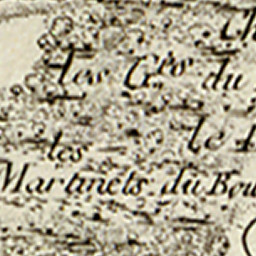 les G.es du
les
Martinets du Bou